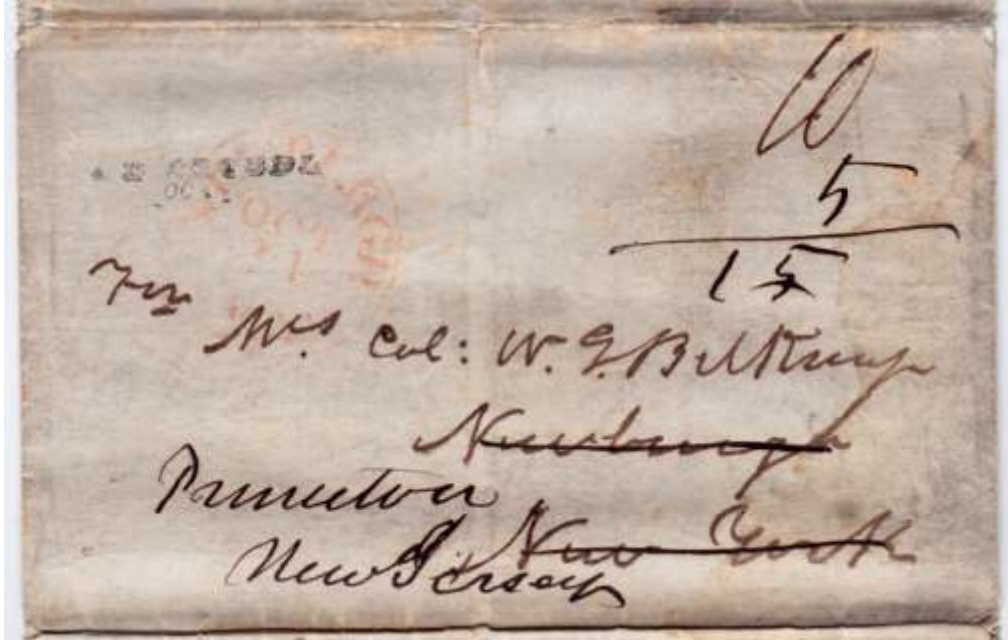 10
5
15
OCT
1
For
Mrs. Col: W. G. Belknap
Newburgh
Princeton
New York
New Jersey